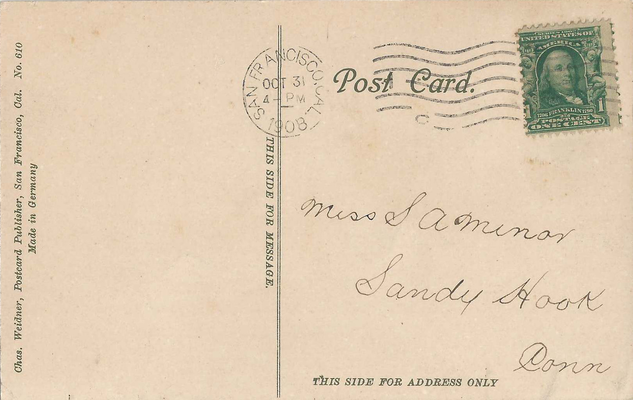 Chas. Weidner, Postcard Publisher, San Francisco, Cal. No. 610
Made in Germany
THIS SIDE FOR MESSAGE.
SAN FRANCISCO, CAL.
OCT 31
4 - PM
1908
Post Card.
UNITED STATES OF
AMERICA
FRANKLIN
POSTAGE
1 ONE CENT 1
Miss S A Minor
Sandy Hook
Conn
THIS SIDE FOR ADDRESS ONLY